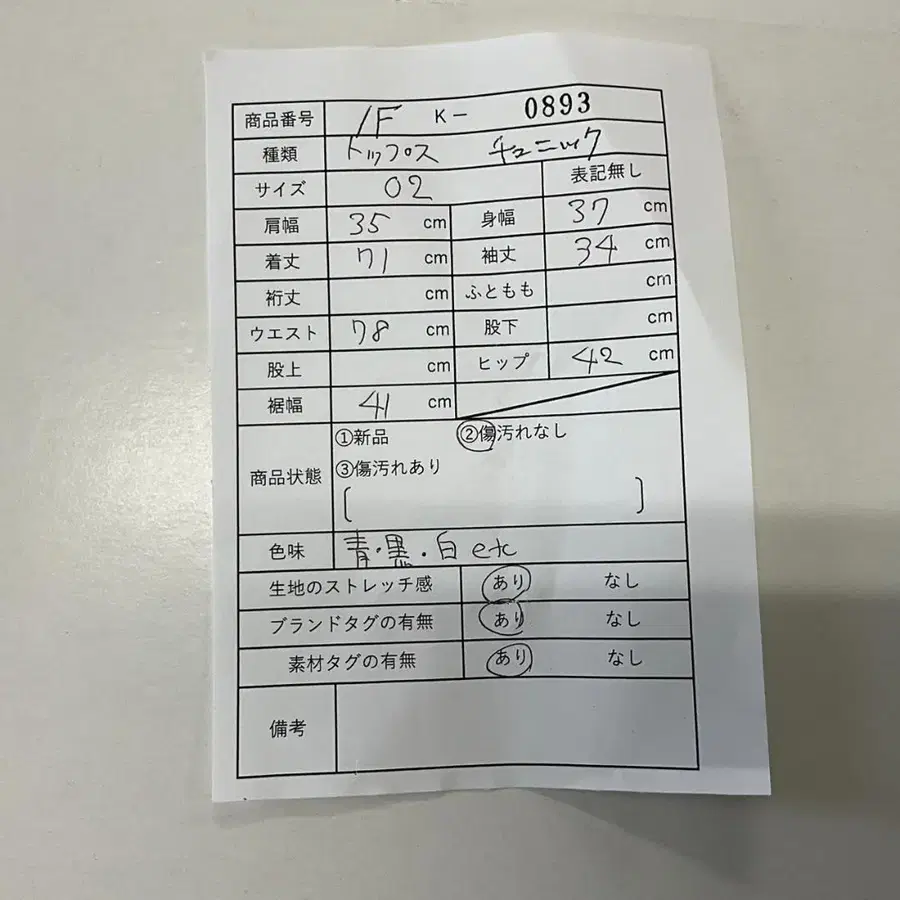 商品番号 1F K- 0893
種類 トップス チュニック
サイズ 02 表記無し
肩幅 35 cm 身幅 37 cm
着丈 71 cm 袖丈 34 cm
裄丈 cm ふともも cm
ウエスト 78 cm 股下 cm
股上 cm ヒップ 42 cm
裾幅 41 cm
商品状態 ①新品 ②傷汚れなし
③傷汚れあり
[ ]
色味 青・黒・白 etc
生地のストレッチ感 あり なし
ブランドタグの有無 あり なし
素材タグの有無 あり なし
備考